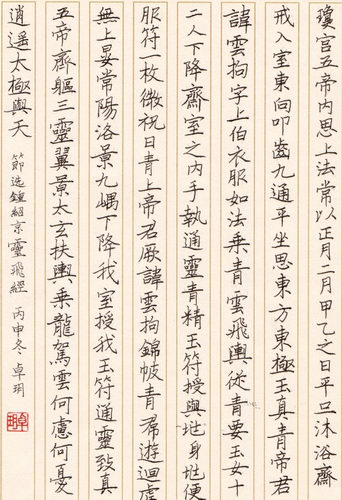 瓊宮五帝內思上法常以正月二月甲乙之日平旦沐浴齋
戒入室東向叩齒九通平坐思東方東極玉真青帝君
諱雲拘字上伯衣服如法乘青雲飛輿從青要玉女十
二人下降齋室之內手執通靈青精玉符授與兆身兆便
服符一枚微祝曰青上帝君厥諱雲拘錦帔青帬遊迴虛
無上晏常陽洛景九嵎下降我室授我玉符通靈致真
五帝齊軀三靈翼景太玄扶輿乘龍駕雲何慮何憂
逍遥太極與天
節选鍾紹京靈飛經 丙申冬 卓玥